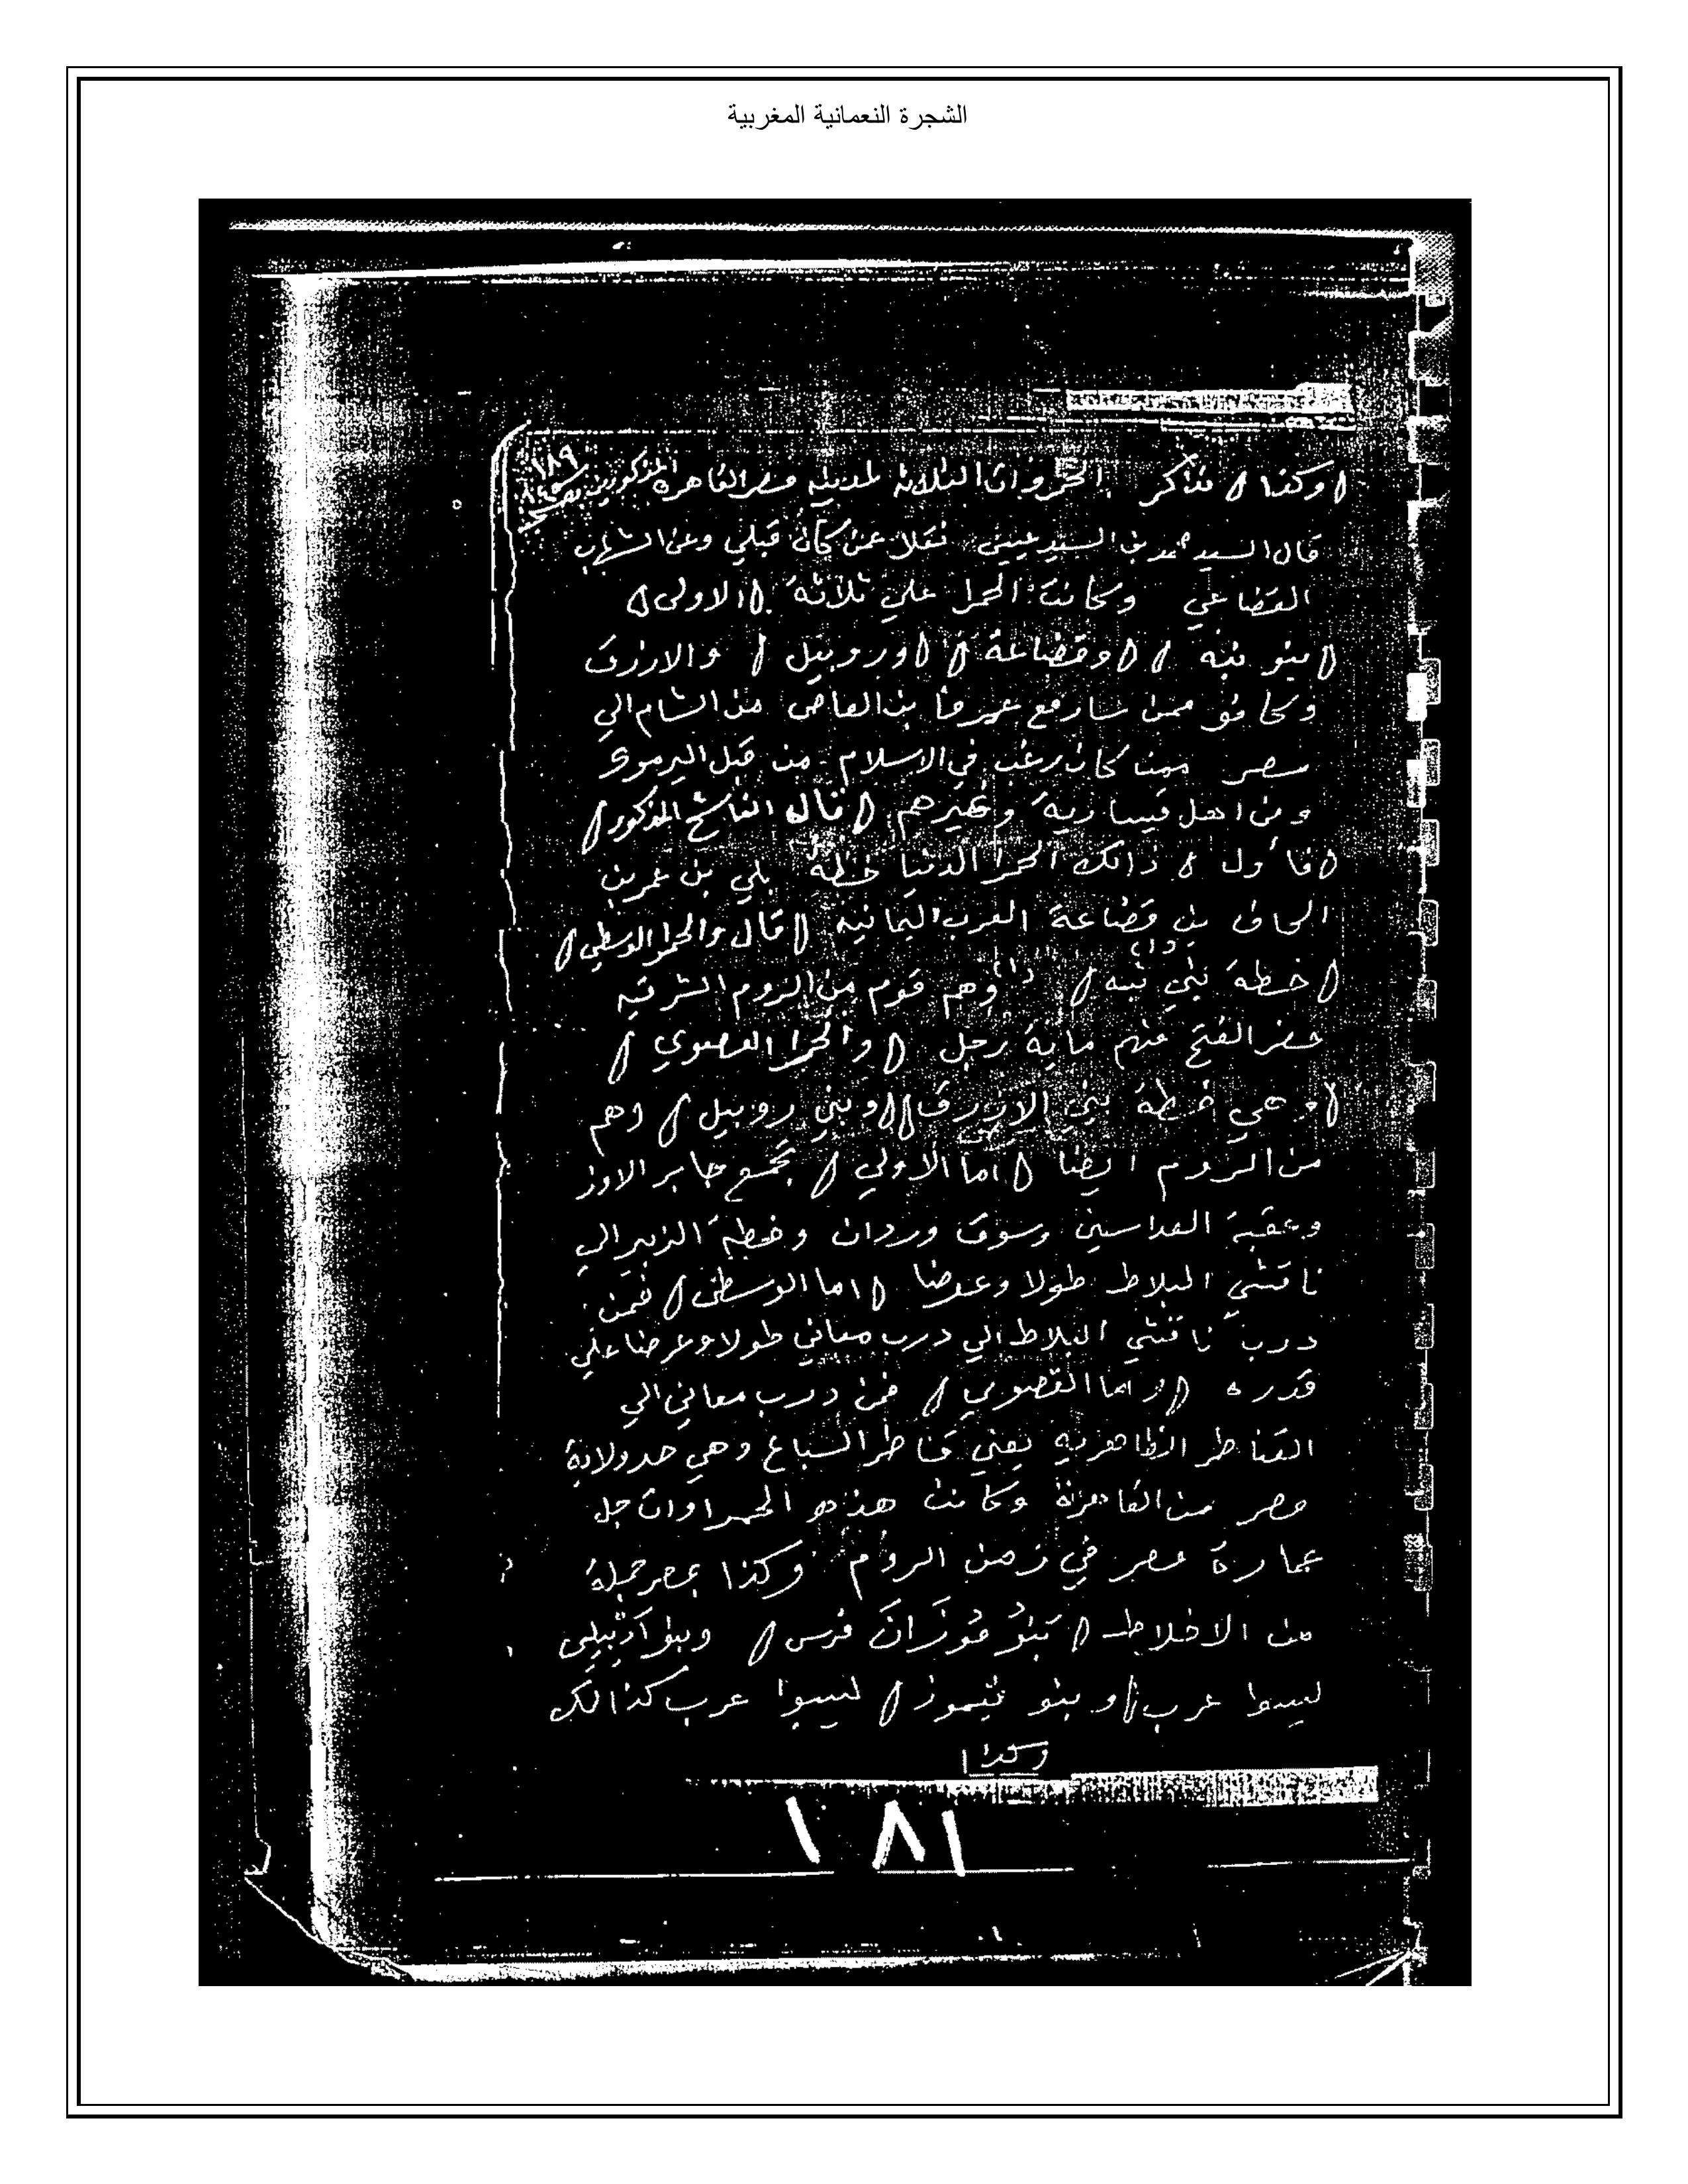 الشجرة النعمانية المغربية
١٨٩
(وكذا) نذكر الحمروات الثلاثة لمدينه مصر القاهره المذكورين
قال السيد محمد بن السيد عيسى نقلا عن كان قبلي وعن الشهاب
القضاعي وكانت الحمرا علي ثلاثة (الاولى)
(بنو نبه) (وقضاعة) (وروبيل) والازرق
وكانو ممن سار مع عمرو بن العاص من الشام الي
مصر ممن كان رغب في الاسلام من قبل اليرموك
ومن اهل قيسارية وغيرهم (قال الناسخ المذكور)
(فأول) ذالك الحمرا الدنيا خطة بلي بن عمر بن
الحاف بن قضاعة العرب اليمانيه (قال والحمرا الوسطي)
(خطة بني نبه) (١) وهم قوم من الروم الشرقيه
حضر الفتح منهم ماية رجل (والحمرا القصوي)
(وهي خطة بني الازرق) (وبني روبيل) وهم
من الروم ايضا (اما الاولي) بجمع جابر الاوز
وعقبة العداسين وسوق وردان وخطة الزبير الي
ناقشي البلاط طولا وعرضا (اما الوسطى) فمن
درب ناقشي البلاط الي درب معاني طولا وعرضا علي
قدره (واما القصوي) فمن درب معاني الي
القناطر الظاهريه يعني قناطر السباع وهي حد ولاية
مصر من القاهرة وكانت هذه الحمراوات جل
عمارة مصر في زمن الروم وكذا بمصر جملة
من الاخلاط (بنو فوزان فرس)
ليسوا عرب (وبنو) ليسوا عرب كذالك
وكذا
١٨١